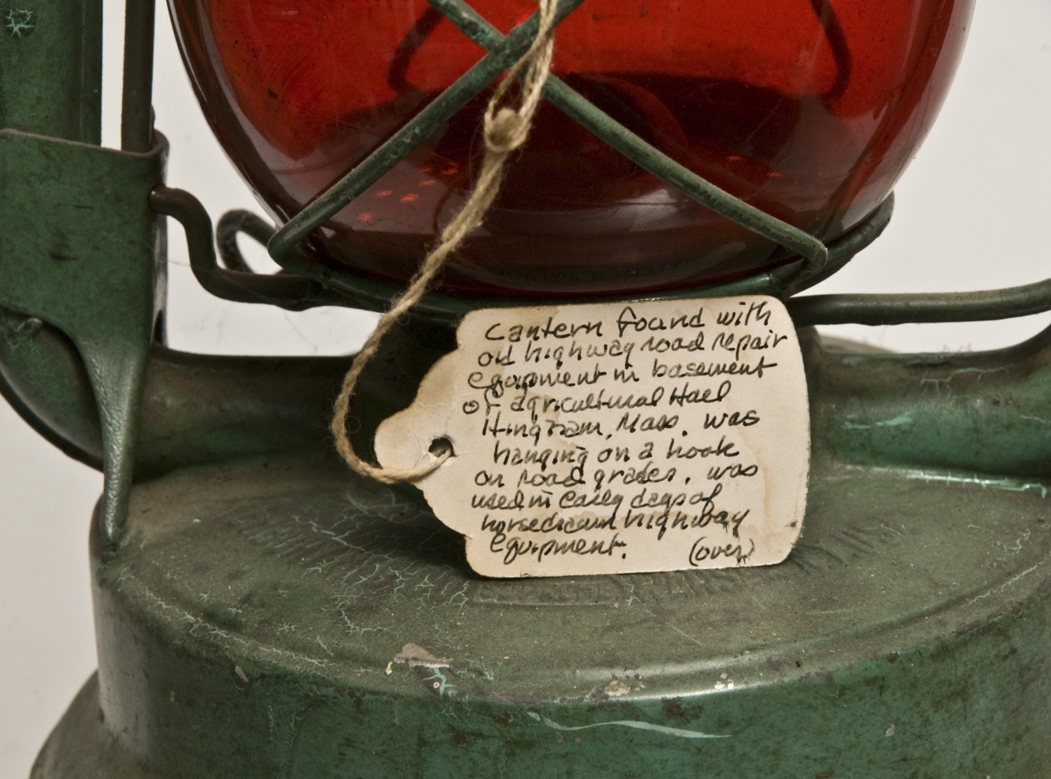 Lantern found with
old highway road repair
equipment in basement
of agricultural Hall
Hingham, Mass. was
hanging on a hook
on road grader. was
used in early days of
horsedrawn highway
equipment. (over)